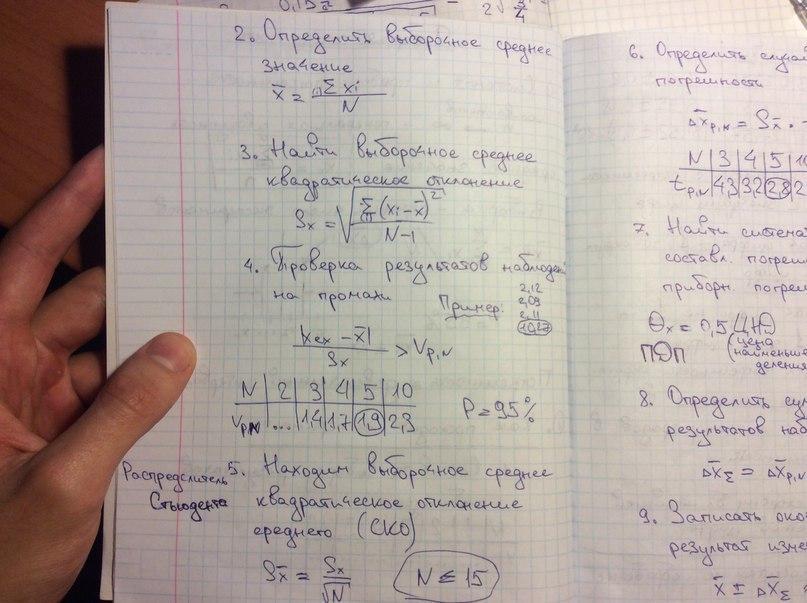 2. Определить выборочное среднее
значение
x̄ = Σ xi / N
3. Найти выборочное среднее
квадратическое отклонение
Sx = √(Σ(xi - x̄)² / N-1)
4. Проверка результатов наблюдени
на промахи
Пример:
2,12
2,09
2,11
10,27
|xex - x̄| / Sx > Vp,N
N | 2 | 3 | 4 | 5 | 10
Vp,N | ... | 1,4 | 1,7 | 1,9 | 2,3
P = 95%
Распределитель
Стьюдента
5. Находим выборочное среднее
квадратическое отклонение
среднего (СКО)
Sx̄ = Sx / √N
N ≤ 15
6. Определить случа
погрешность
Δx̄p,N = Sx̄ ·
N | 3 | 4 | 5 | 1
tp,N | 4,3 | 3,2 | 2,8 | 2
7. Найти система
составл. погре
приборн. погре
Θx = 0,5 ЦНД
(цена
наименьше
деления
ПОП
8. Определить су
результатов наб
Δx̄Σ = Δx̄p,N
9. Записать око
результат изме
x̄ ± Δx̄Σ